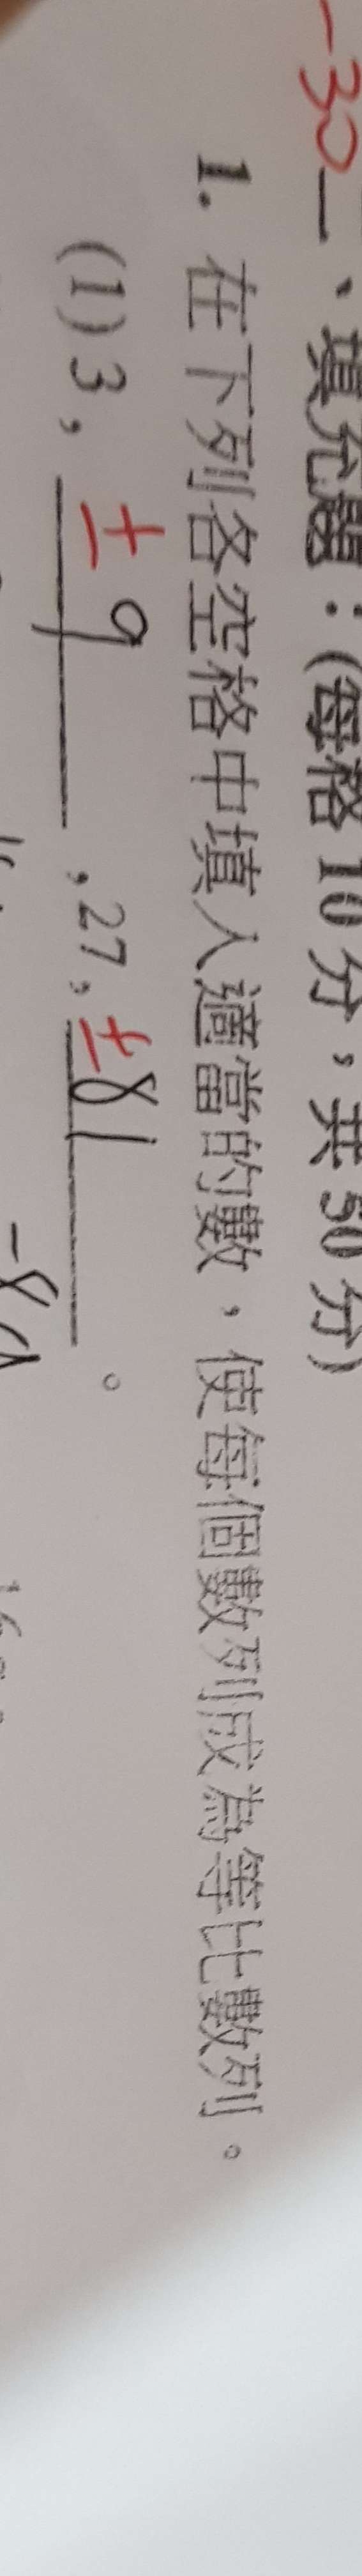 -30
一、填充題:(每格10分,共50分)
1. 在下列各空格中填入適當的數,使每個數列成為等比數列。
(1) 3, ±9 ,27, ±81 。